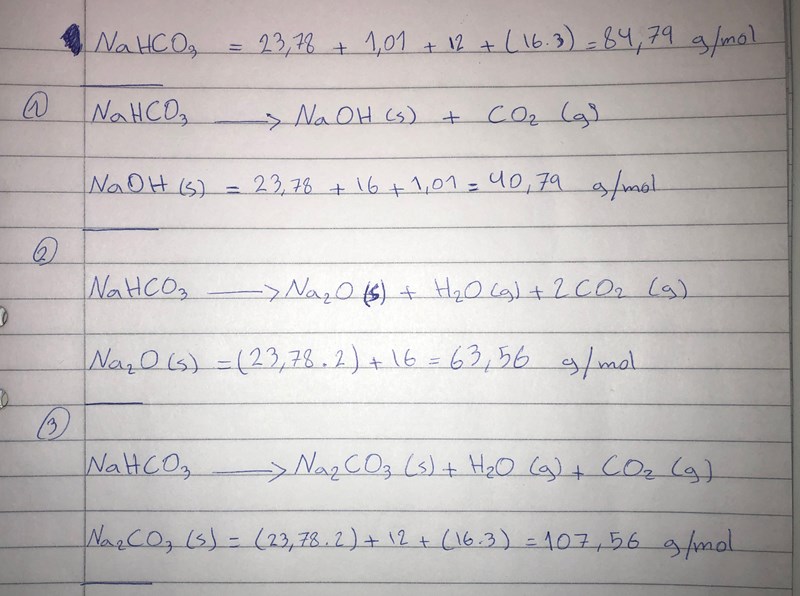 NaHCO₃ = 23,78 + 1,01 + 12 + (16·3) = 84,79 g/mol
① NaHCO₃ ⟶ NaOH (s) + CO₂ (g)
NaOH (s) = 23,78 + 16 + 1,01 = 40,79 g/mol
② NaHCO₃ ⟶ Na₂O (s) + H₂O (g) + 2CO₂ (g)
Na₂O (s) = (23,78·2) + 16 = 63,56 g/mol
③ NaHCO₃ ⟶ Na₂CO₃ (s) + H₂O (g) + CO₂ (g)
Na₂CO₃ (s) = (23,78·2) + 12 + (16·3) = 107,56 g/mol